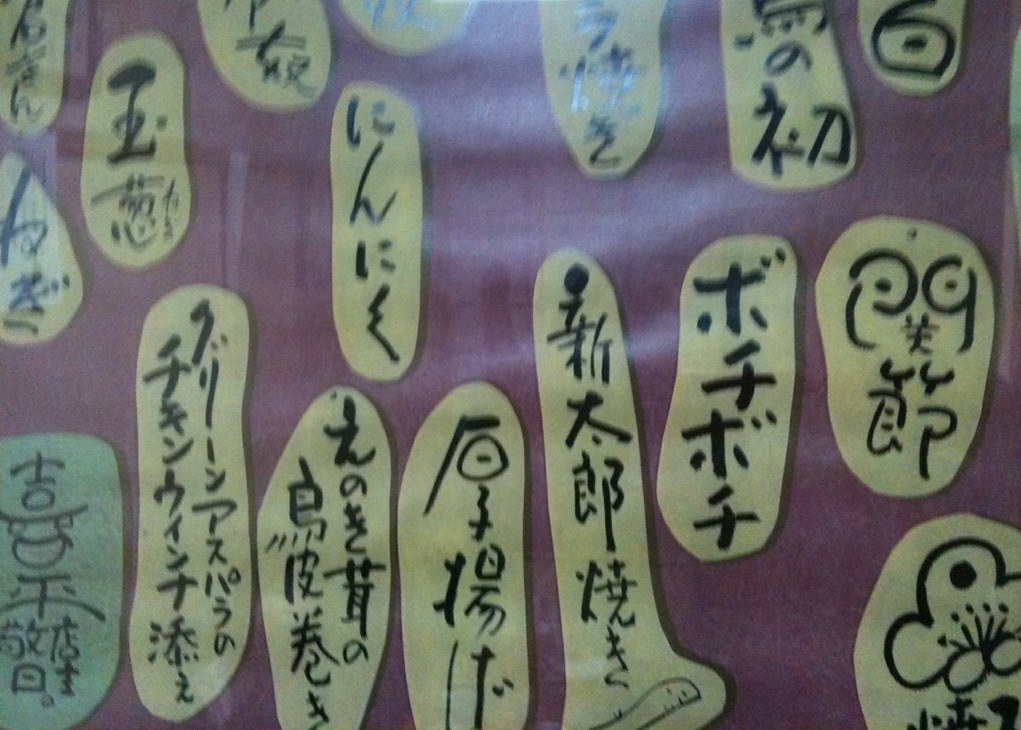 白
の初
焼き
にんにく
玉葱
ねぎ
関節
ボチボチ
新太郎焼き
厚揚げ
えのき茸の
鳥皮巻き
グリーンアスパラの
チキンウインナ添え
店主
敬白。